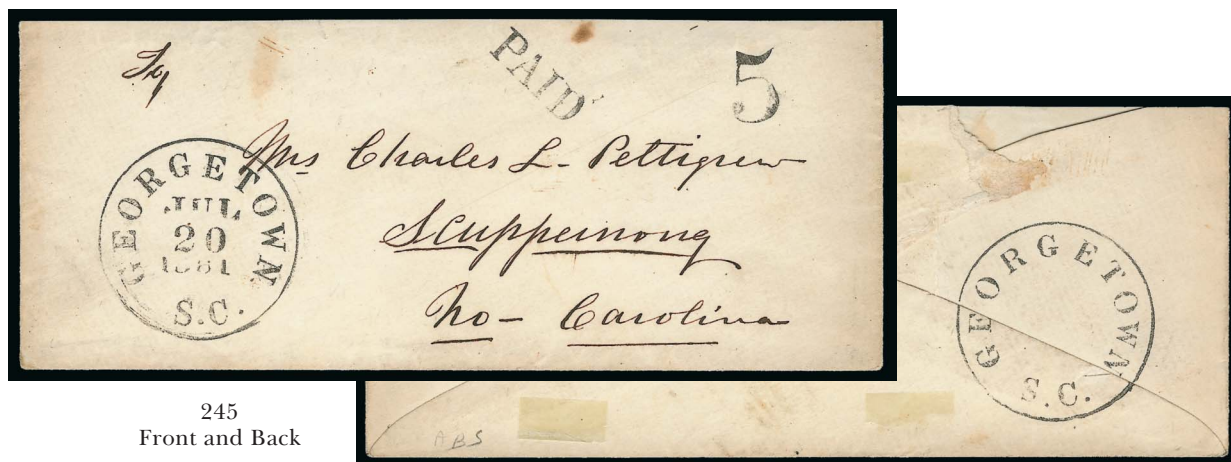 PAID
5
GEORGETOWN
JUL
20
1861
S.C.
Mrs Charles L- Pettigrew
Scuppernong
No- Carolina
GEORGETOWN
S.C.
ABS
245
Front and Back